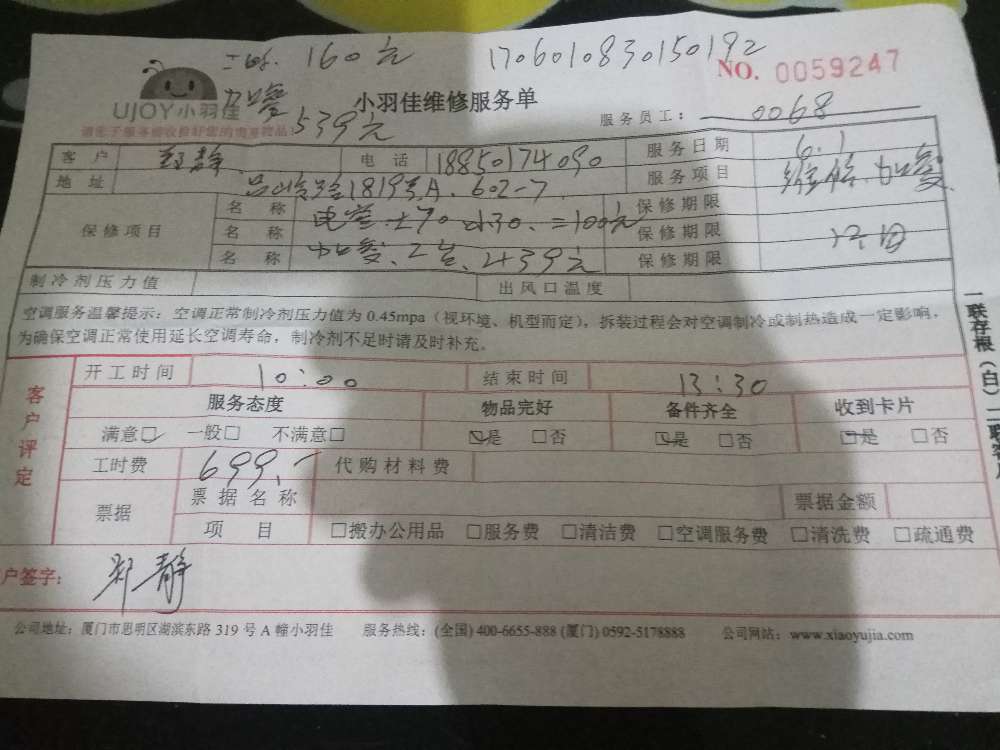 160元 1706010830150192
NO. 0059247
UJOY小羽佳
加爱
小羽佳维修服务单
539元
服务员工: 0068
客户 郑静 电话 18850174090 服务日期 6.1
地址 吕岭路1819号A.602-7 服务项目 维修.加爱
保修项目
名称 +70 +30.=100元 保修期限
名称 2台、2 439元 保修期限
名称 保修期限
制冷剂压力值 出风口温度
空调服务温馨提示:空调正常制冷剂压力值为 0.45mpa(视环境、机型而定),拆装过程会对空调制冷或制热造成一定影响,
为确保空调正常使用延长空调寿命,制冷剂不足时请及时补充。
一联存根(白)二联客户
客户评定
开工时间 10:00 结束时间 13:30
服务态度 物品完好 备件齐全 收到卡片
满意☑ 一般□ 不满意□ ☑是 □否 ☑是 □否 ☑是 □否
工时费 699.- 代购材料费
票据 票据名称 票据金额
项目 □搬办公用品 □服务费 □清洁费 □空调服务费 □清洗费 □疏通费
户签字: 郑静
公司地址:厦门市思明区湖滨东路 319 号 A 幢小羽佳 服务热线:(全国) 400-6655-888 (厦门) 0592-5178888 公司网站:www.xiaoyujia.com